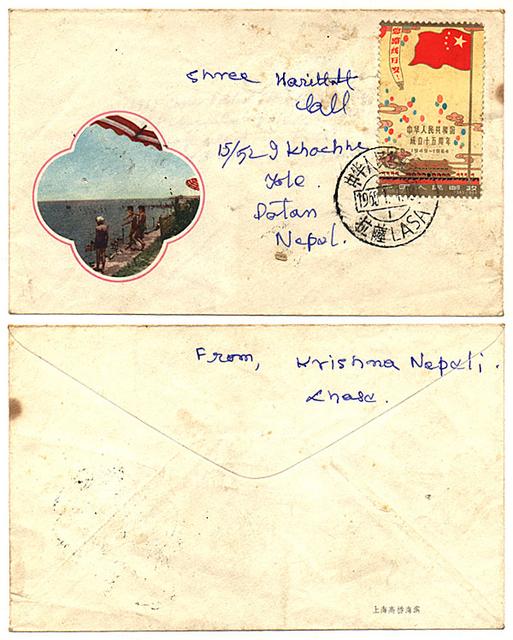 Shree
Lall
15/52 I Khachhe
Tole.
Patan
Nepal.
中华人民共和国
成立十五周年
1949-1964
中国人民邮政
中华人民
拉薩 LASA
From, Krishna Nepali.
Lhasa.
上海高桥海滨